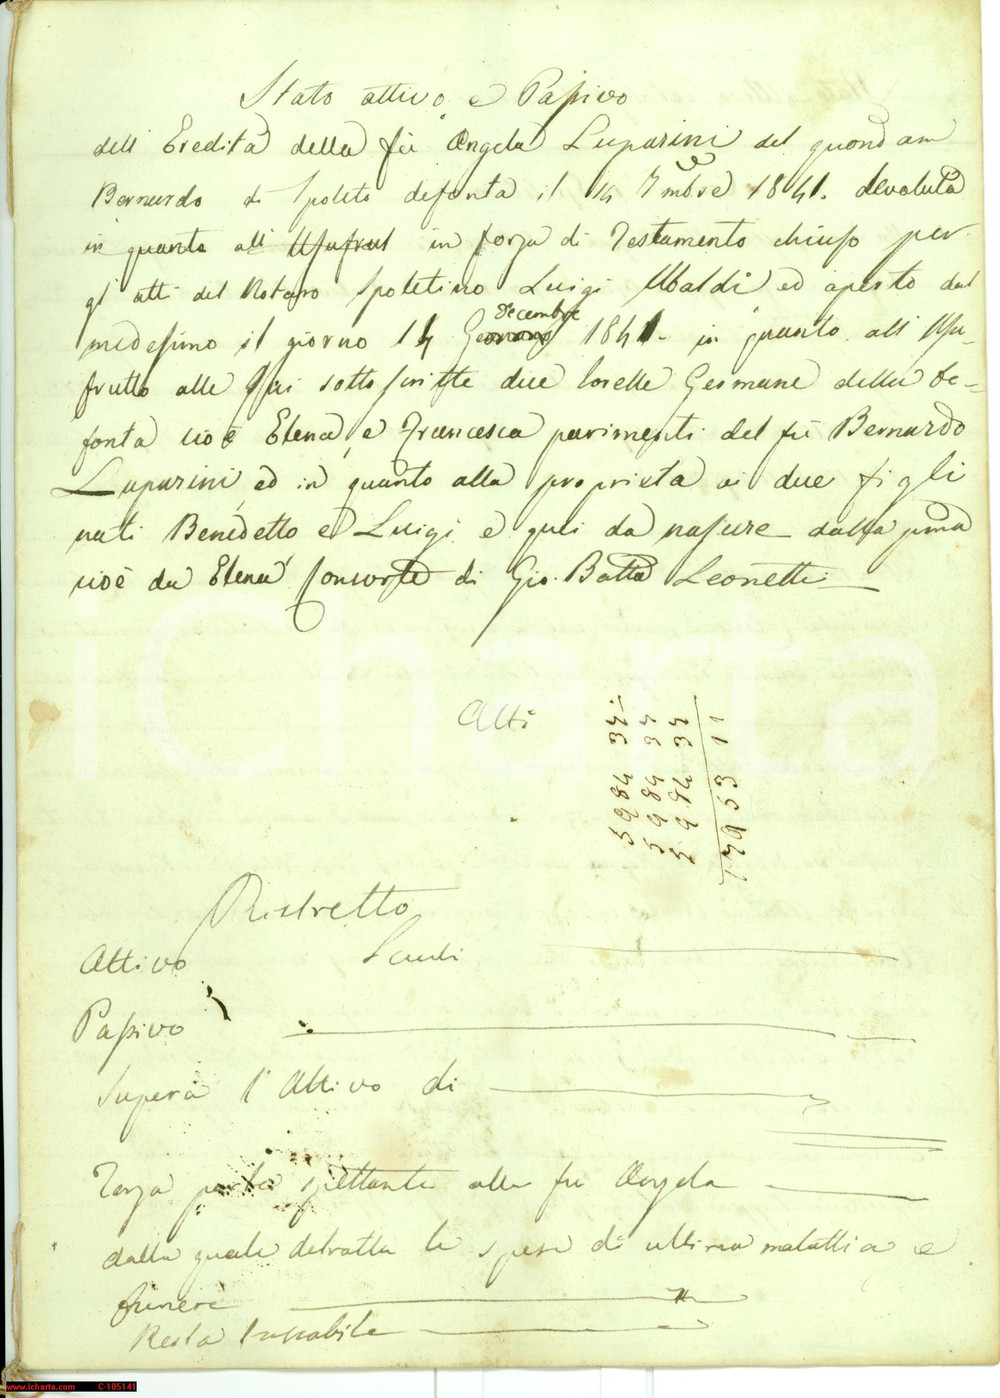 Stato attivo e Passivo
dell Eredità della fù Angela Luparini del quondam
Bernardo di Spoleto defonta il 14 7mbre 1841. devoluta
in quanto all Usufrut in forza di Testamento chiuso per
gl atti del Notaro Spoletino Luigi Ubaldi ed aperto dal
decembre
medesimo il giorno 14 1841. in quanto all Usu-
frutto alle qui sottoscritte due Sorelle Germane della de-
fonta cioè Elena, e Francesca parimenti del fù Bernardo
Luparini, ed in quanto alla proprietà ai due figli
nati Benedetto e Luigi e quli da nascere dalla pma
cioè da Elena Consorte di Gio. Batta Leonetti
Atti
5984 34
5984 34
5984 34
17953 11
Ristretto
Attivo Scudi
Passivo
Supera l'Attivo di
Terza parte spettante alla fù Angela
dalla quale detratta le spese di ultima malattia e
funeri
Resta tassabile
iCharta
www.icharta.com C-105141